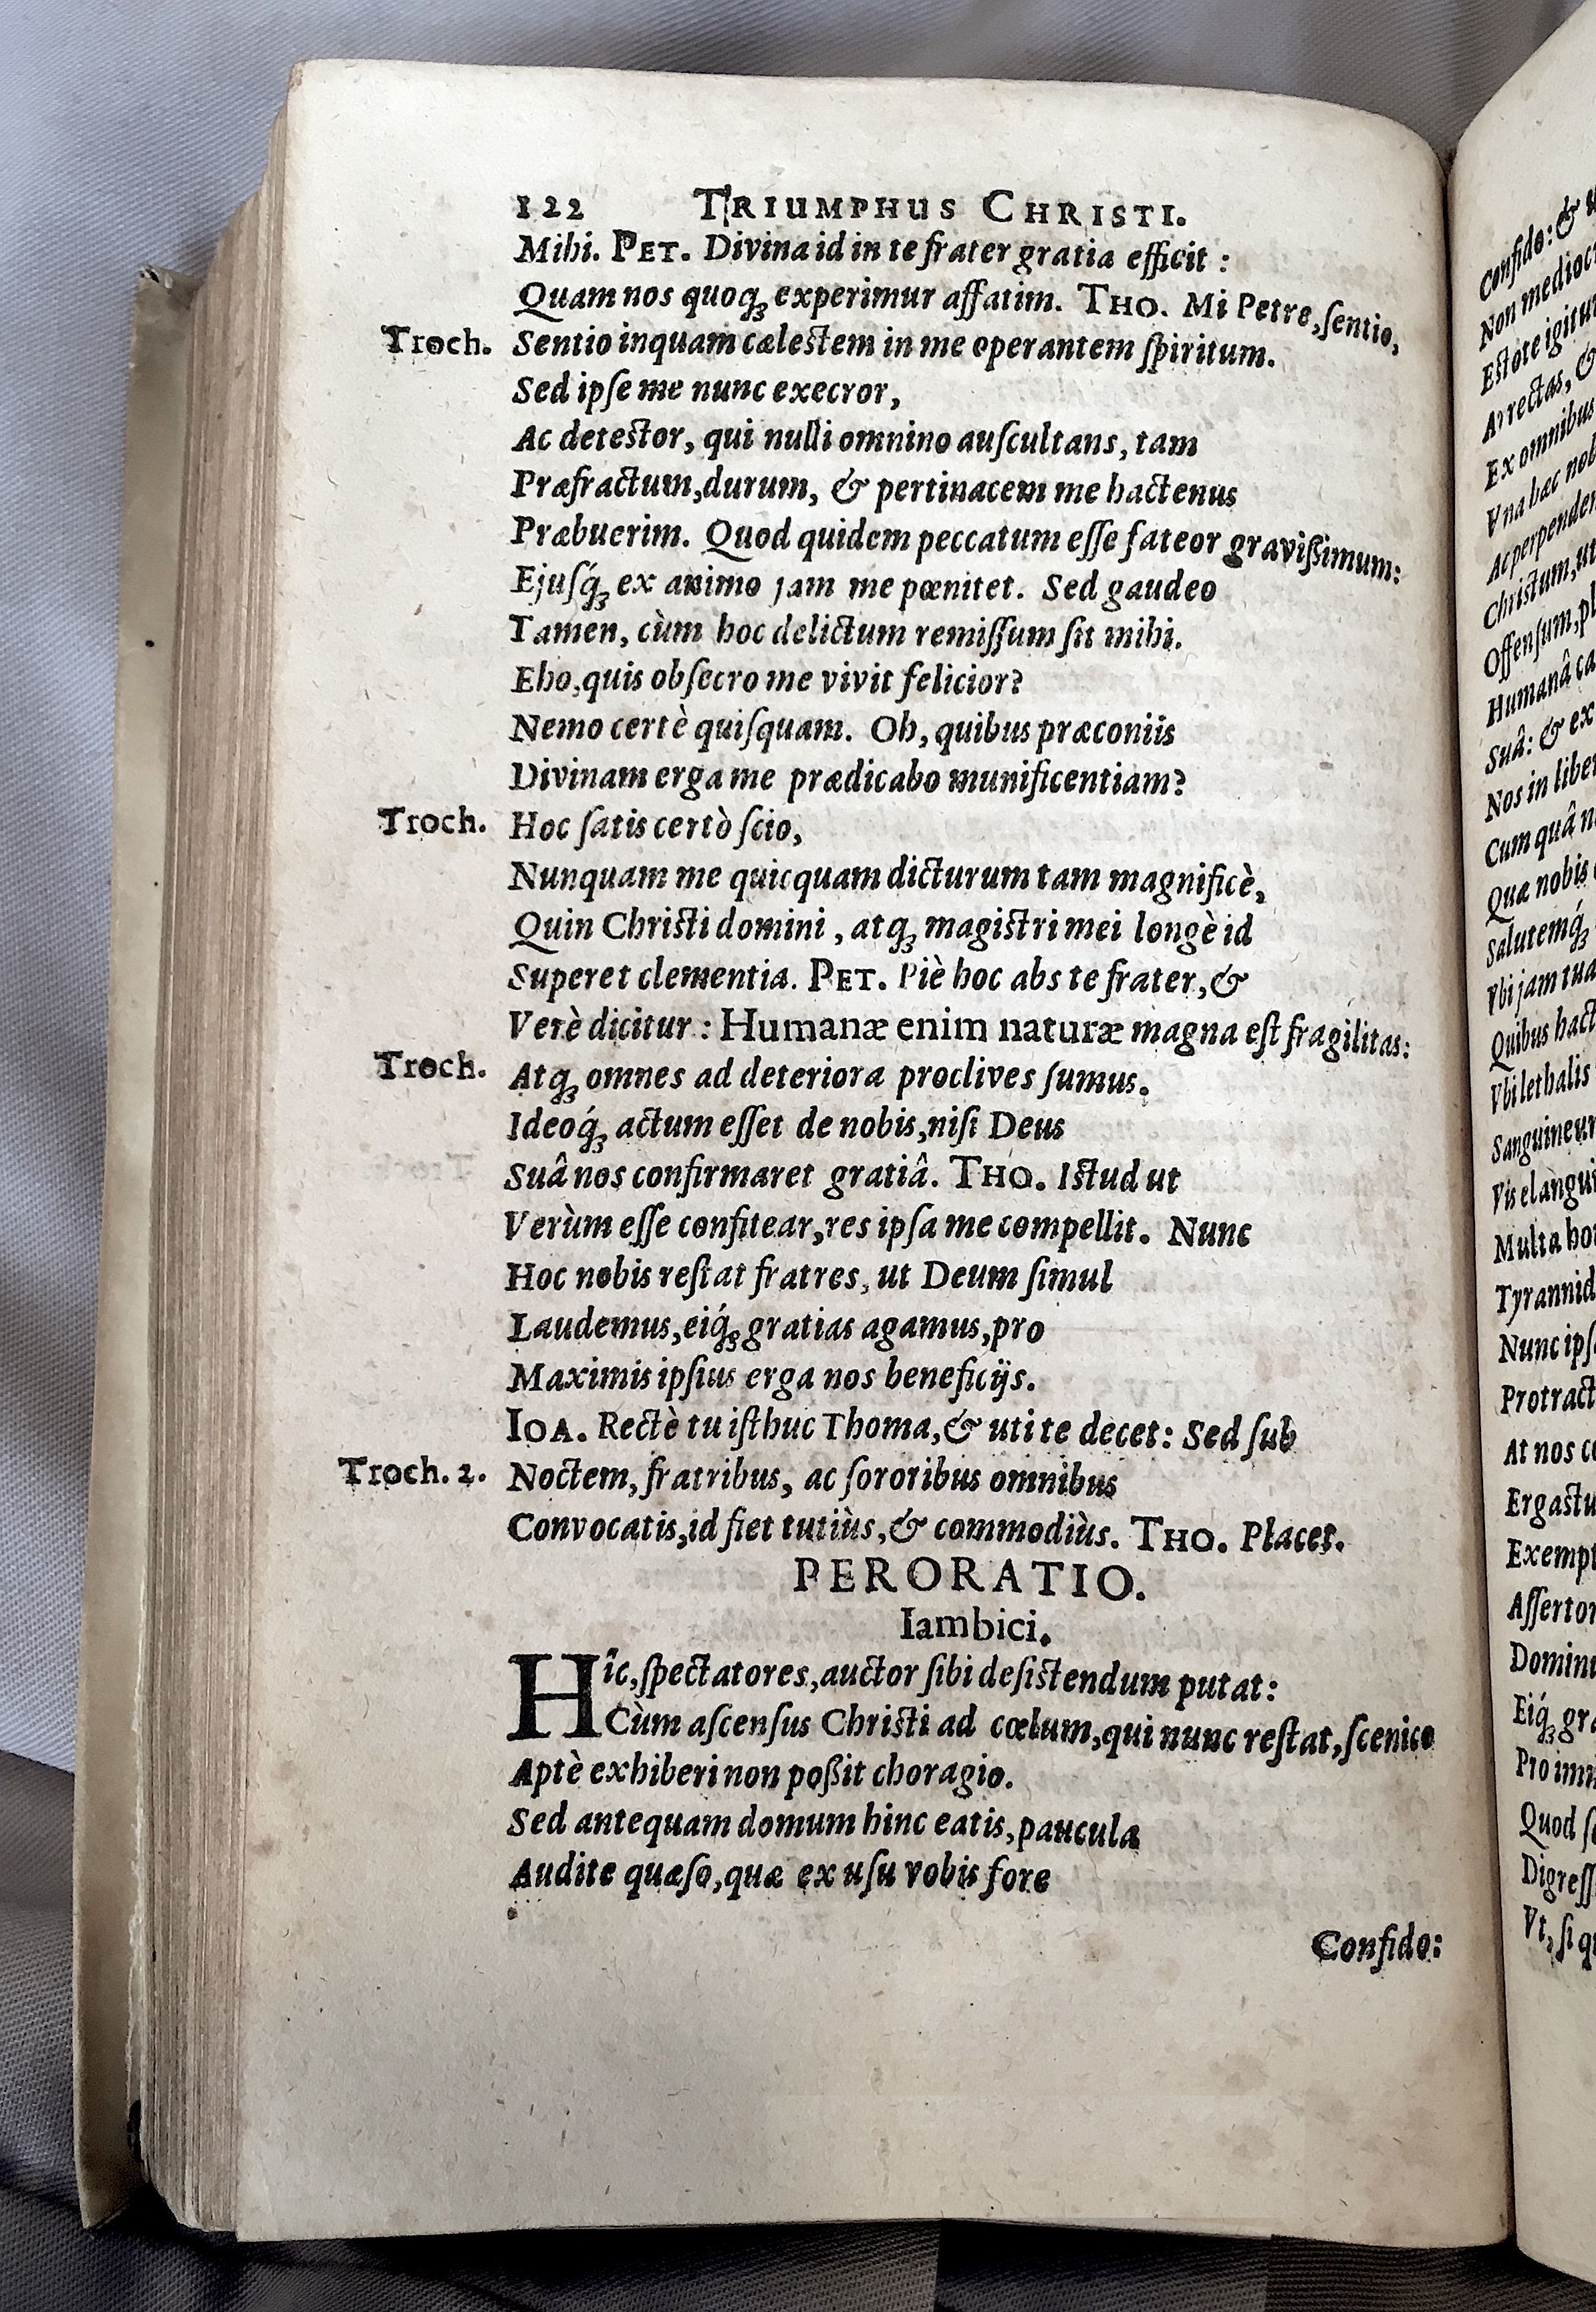 122 TRIUMPHUS CHRISTI.
Mihi. PET. Divina id in te frater gratia efficit :
Quam nos quoqꝫ experimur affatim. THO. Mi Petre, ſentio,
Troch. Sentio inquam cælestem in me operantem ſpiritum.
Sed ipſe me nunc execror,
Ac detestor, qui nulli omnino auſcultans, tam
Præfractum, durum, & pertinacem me hactenus
Præbuerim. Quod quidem peccatum eſſe fateor gravißimum:
Ejuſq́ꝫ ex animo jam me pœnitet. Sed gaudeo
Tamen, cùm hoc delictum remiſſum ſit mihi.
Eho, quis obſecro me vivit felicior?
Nemo certè quiſquam. Oh, quibus præconiis
Divinam erga me prædicabo munificentiam?
Troch. Hoc ſatis certò ſcio,
Nunquam me quicquam dicturum tam magnificè,
Quin Christi domini, atqꝫ magistri mei longè id
Superet clementia. PET. Piè hoc abs te frater, &
Verè dicitur : Humanæ enim naturæ magna eſt fragilitas:
Troch. Atqꝫ omnes ad deteriora proclives ſumus.
Ideoq́ꝫ actum eſſet de nobis, niſi Deus
Suâ nos confirmaret gratiâ. THO. Istud ut
Verùm eſſe confitear, res ipſa me compellit. Nunc
Hoc nobis reſtat fratres, ut Deum ſimul
Laudemus, eiq́ꝫ gratias agamus, pro
Maximis ipſius erga nos beneficijs.
IOA. Rectè tu iſthuc Thoma, & uti te decet: Sed ſub
Troch. 2. Noctem, fratribus, ac ſororibus omnibus
Convocatis, id fiet tutiùs, & commodiùs. THO. Placet.
PERORATIO.
Iambici.
Hîc, ſpectatores, auctor ſibi deſistendum putat:
Cùm aſcenſus Christi ad cœlum, qui nunc reſtat, ſcenico
Aptè exhiberi non poßit choragio.
Sed antequam domum hinc eatis, paucula
Audite quæſo, quæ ex uſu vobis fore
Confido:
Confido: &
Non
Eſtote
Arrectas, &
Ex omnibus
Vna hæc
Ac
Christum, ut
Offenſum,
Humanâ
Suâ: & ex
Nos in
Cum quâ
Quæ nobis
Salutemq́ꝫ
Vbi jam
Quibus
Vbi lethalis
Vis
Multa
Nunc
At nos
Eiq́ꝫ
Pro
Quod
Vt, ſi